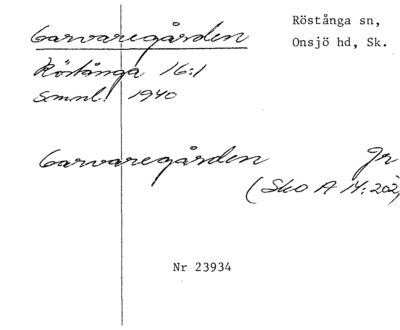 Garvaregården
Röstånga sn,
Onsjö hd, Sk.
Röstånga 16:1
smnl. 1940
Garvaregården Jr
(Sko A 14:202)
Nr 23934